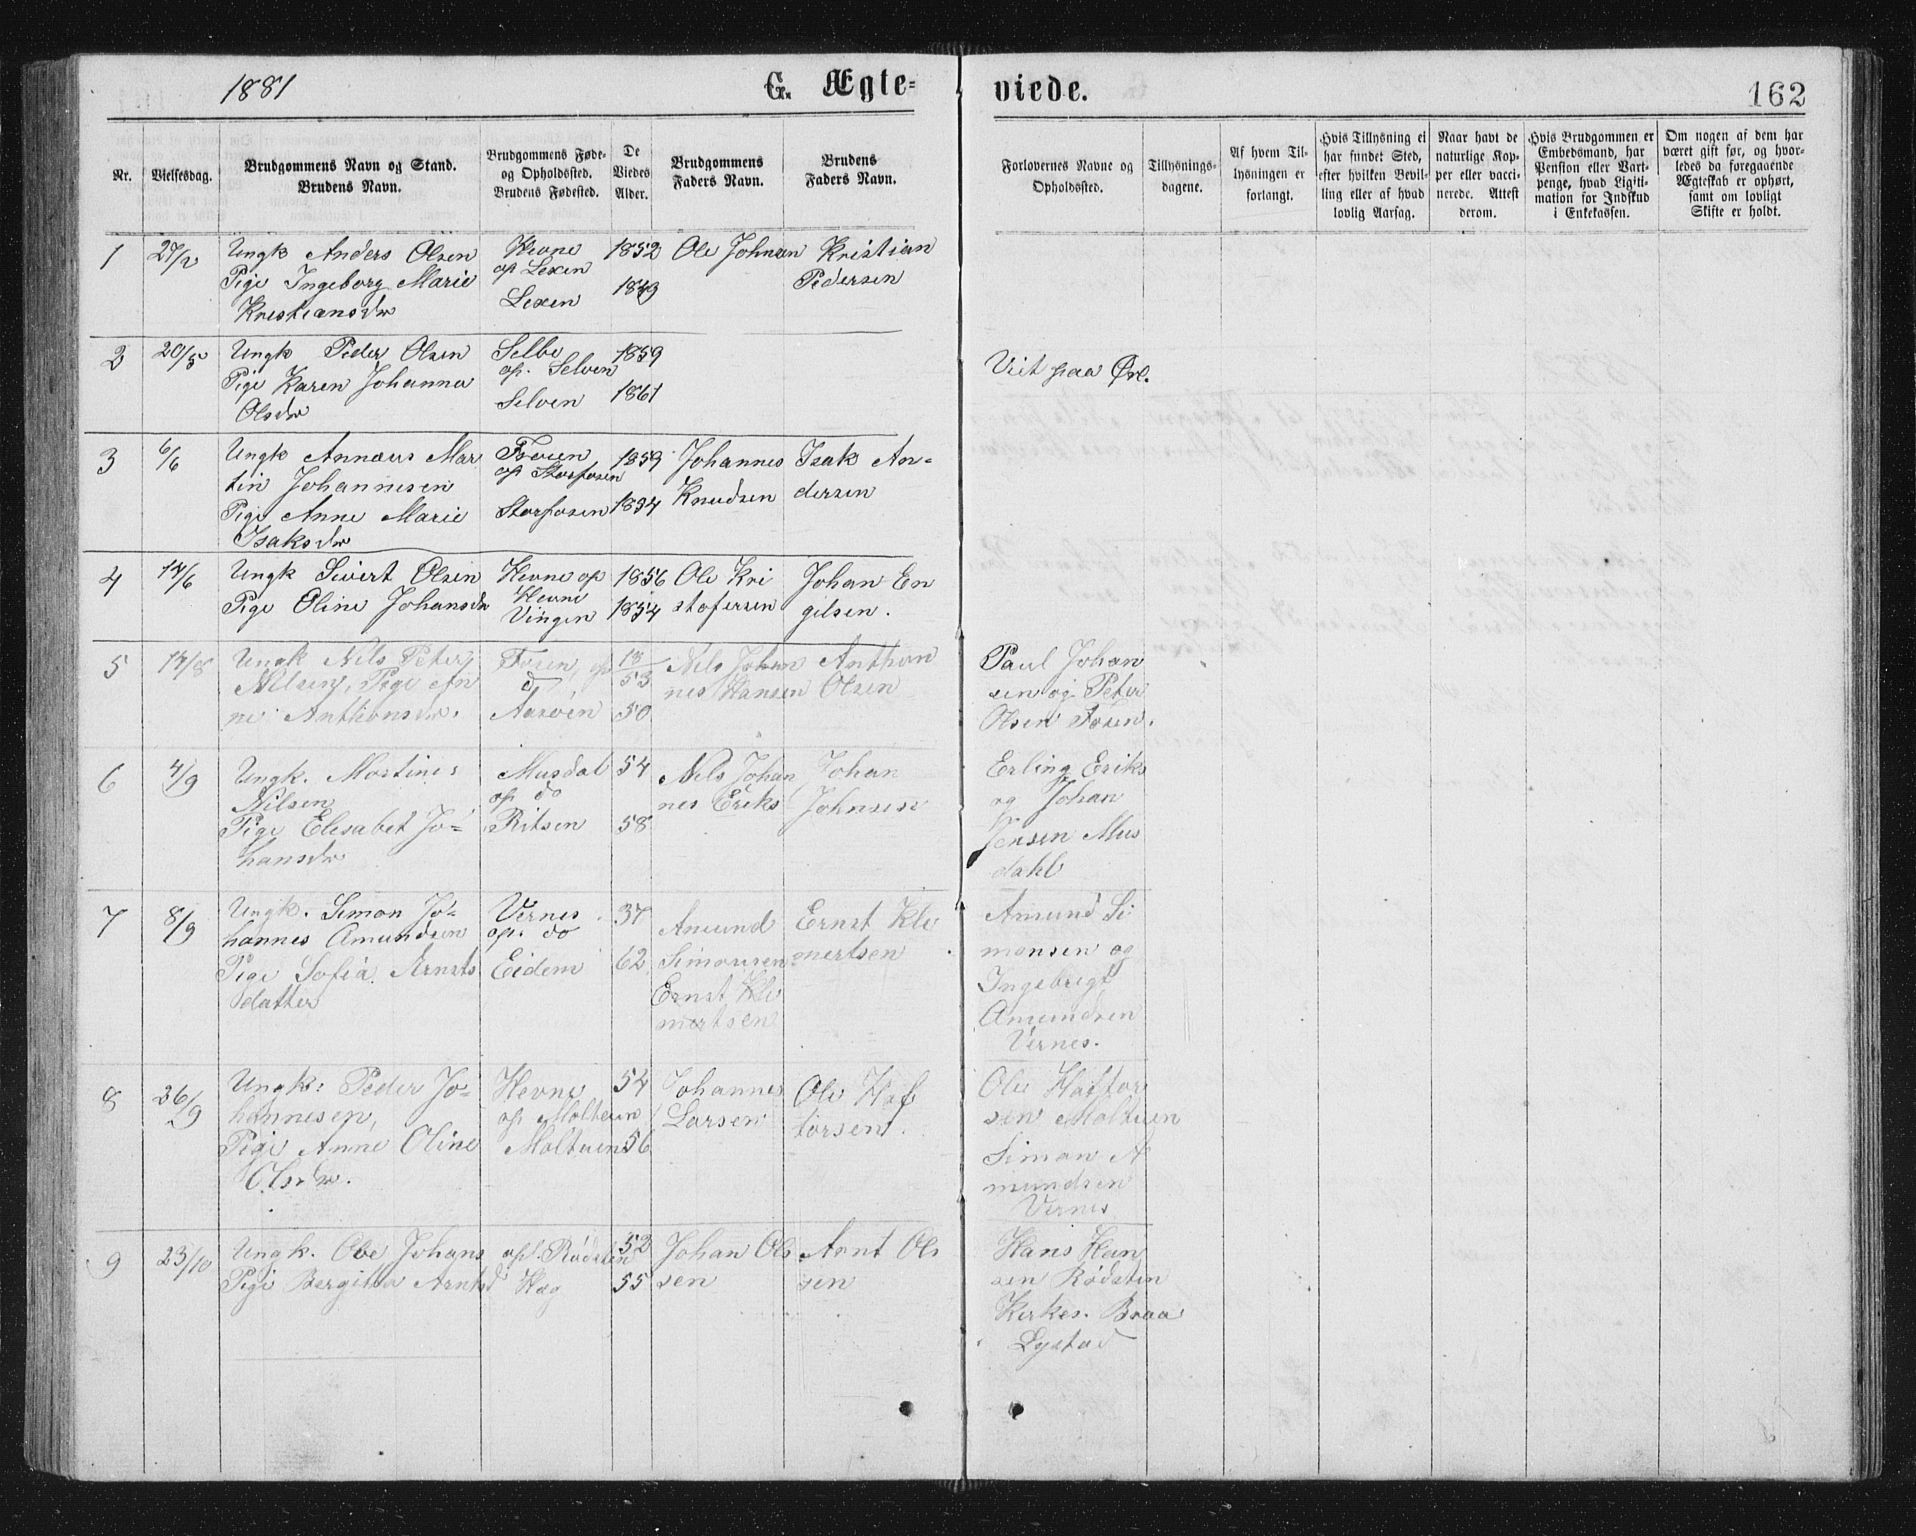 1881
G. Ægte-
viede.
162
Nr.
Vielsesdag.
Brudgommens Navn og Stand.
Brudens Navn.
Brudgommens Føde-
og Opholdssted.
Brudens Fødested.
De
Viedes
Alder.
Brudgommens
Faders Navn.
Brudens
Faders Navn.
Forlovernes Navne og
Opholdssted.
Tillysnings-
dagene.
Af hvem Til-
lysningen er
forlangt.
Hvis Tillysning ei
har fundet Sted,
efter hvilken Bevil-
ling eller af hvad
lovlig Aarsag.
Naar havt de
naturlige Kop-
per eller vacci-
nerede. Attest
derom.
Hvis Brudgommen er
Embedsmand, har
Pension eller Vart-
penge, hvad Ligiti-
mation for Indskud
i Enkekassen.
Om nogen af dem har
været gift før, og hvor-
ledes da foregaaende
Ægteskab er ophørt,
samt om lovligt
Skifte er holdt.
1
27/2
Ungk Anders Olsen
Pige Ingeborg Marie
Kristiansdr
Hevne
op Lexen
Lexen
1852
Ole Johnsen
Kristian
Pedersen
2
20/5
Ungk Peder Olsen
Pige Karen Johanna
Olsdr
Selbe
op. Selven
Selven
1859
1861
Viet paa Ørl.
3
6/6
Ungk Annæus Mar
tin Johannesen
Pige Anne Marie
Isaksdr
Froien
op Storfosen
Storfosen
1859
1834
Johannes
Knudsen
Isak An-
dersen
4
14/6
Ungk Sivert Olsen
Pige Oline Johansdr
Hevne op
Hevne
Vingen
1856
1854
Ole Kri
stofersen
Johan En
gelsen.
5
14/8
Ungk Nils Peter
Nilsen, Pige An
ne Anthonsdr.
Fosen, op
do
Aasven
18/53
50
Nils Johan
nes Hansen
Anthon
Olsen
Paul Johan
sen og Peter
Olsen Fosen.
6
4/9
Ungk. Martines
Nilsen
Pige Elesabet Jo-
hansdr
Musdal
op do
Ritsen
54
58
Nils Johan
nes Eriks
Johan
Johnsen
Erling Eriks
og Johan
Jensen Mus
dahl
7
8/9
Ungk. Simon Jo-
hannes Amundsen
Pige Sofia Arnsts
datter
Vernes
op. do
Eidem
37
62
Amund
Simonsen
Ernst Kle
mertsen
Ernst Kle
mertsen
Amund Si
monsen og
Ingebrigt
Amundsen
Vernes.
8
26/9
Ungk: Peder Jo-
hannesen,
Pige Anne Oline
Olsdr.
Hevne
op Moltuen
Moltuen
54
56
Johannes
Larsen
Ole Haf
torsen.
Ole Haftor
sen Moltuen
Simon A
mundsen
Vernes
9
23/10
Ungk. Ole Johans
Pige Bergitta Arntsd
op. Rødsten
Hag
52
55
Johan Ols
sen
Arnt Ols
sen
Hans Han
sen Rødsten
Kirkes. Braa
Lystad